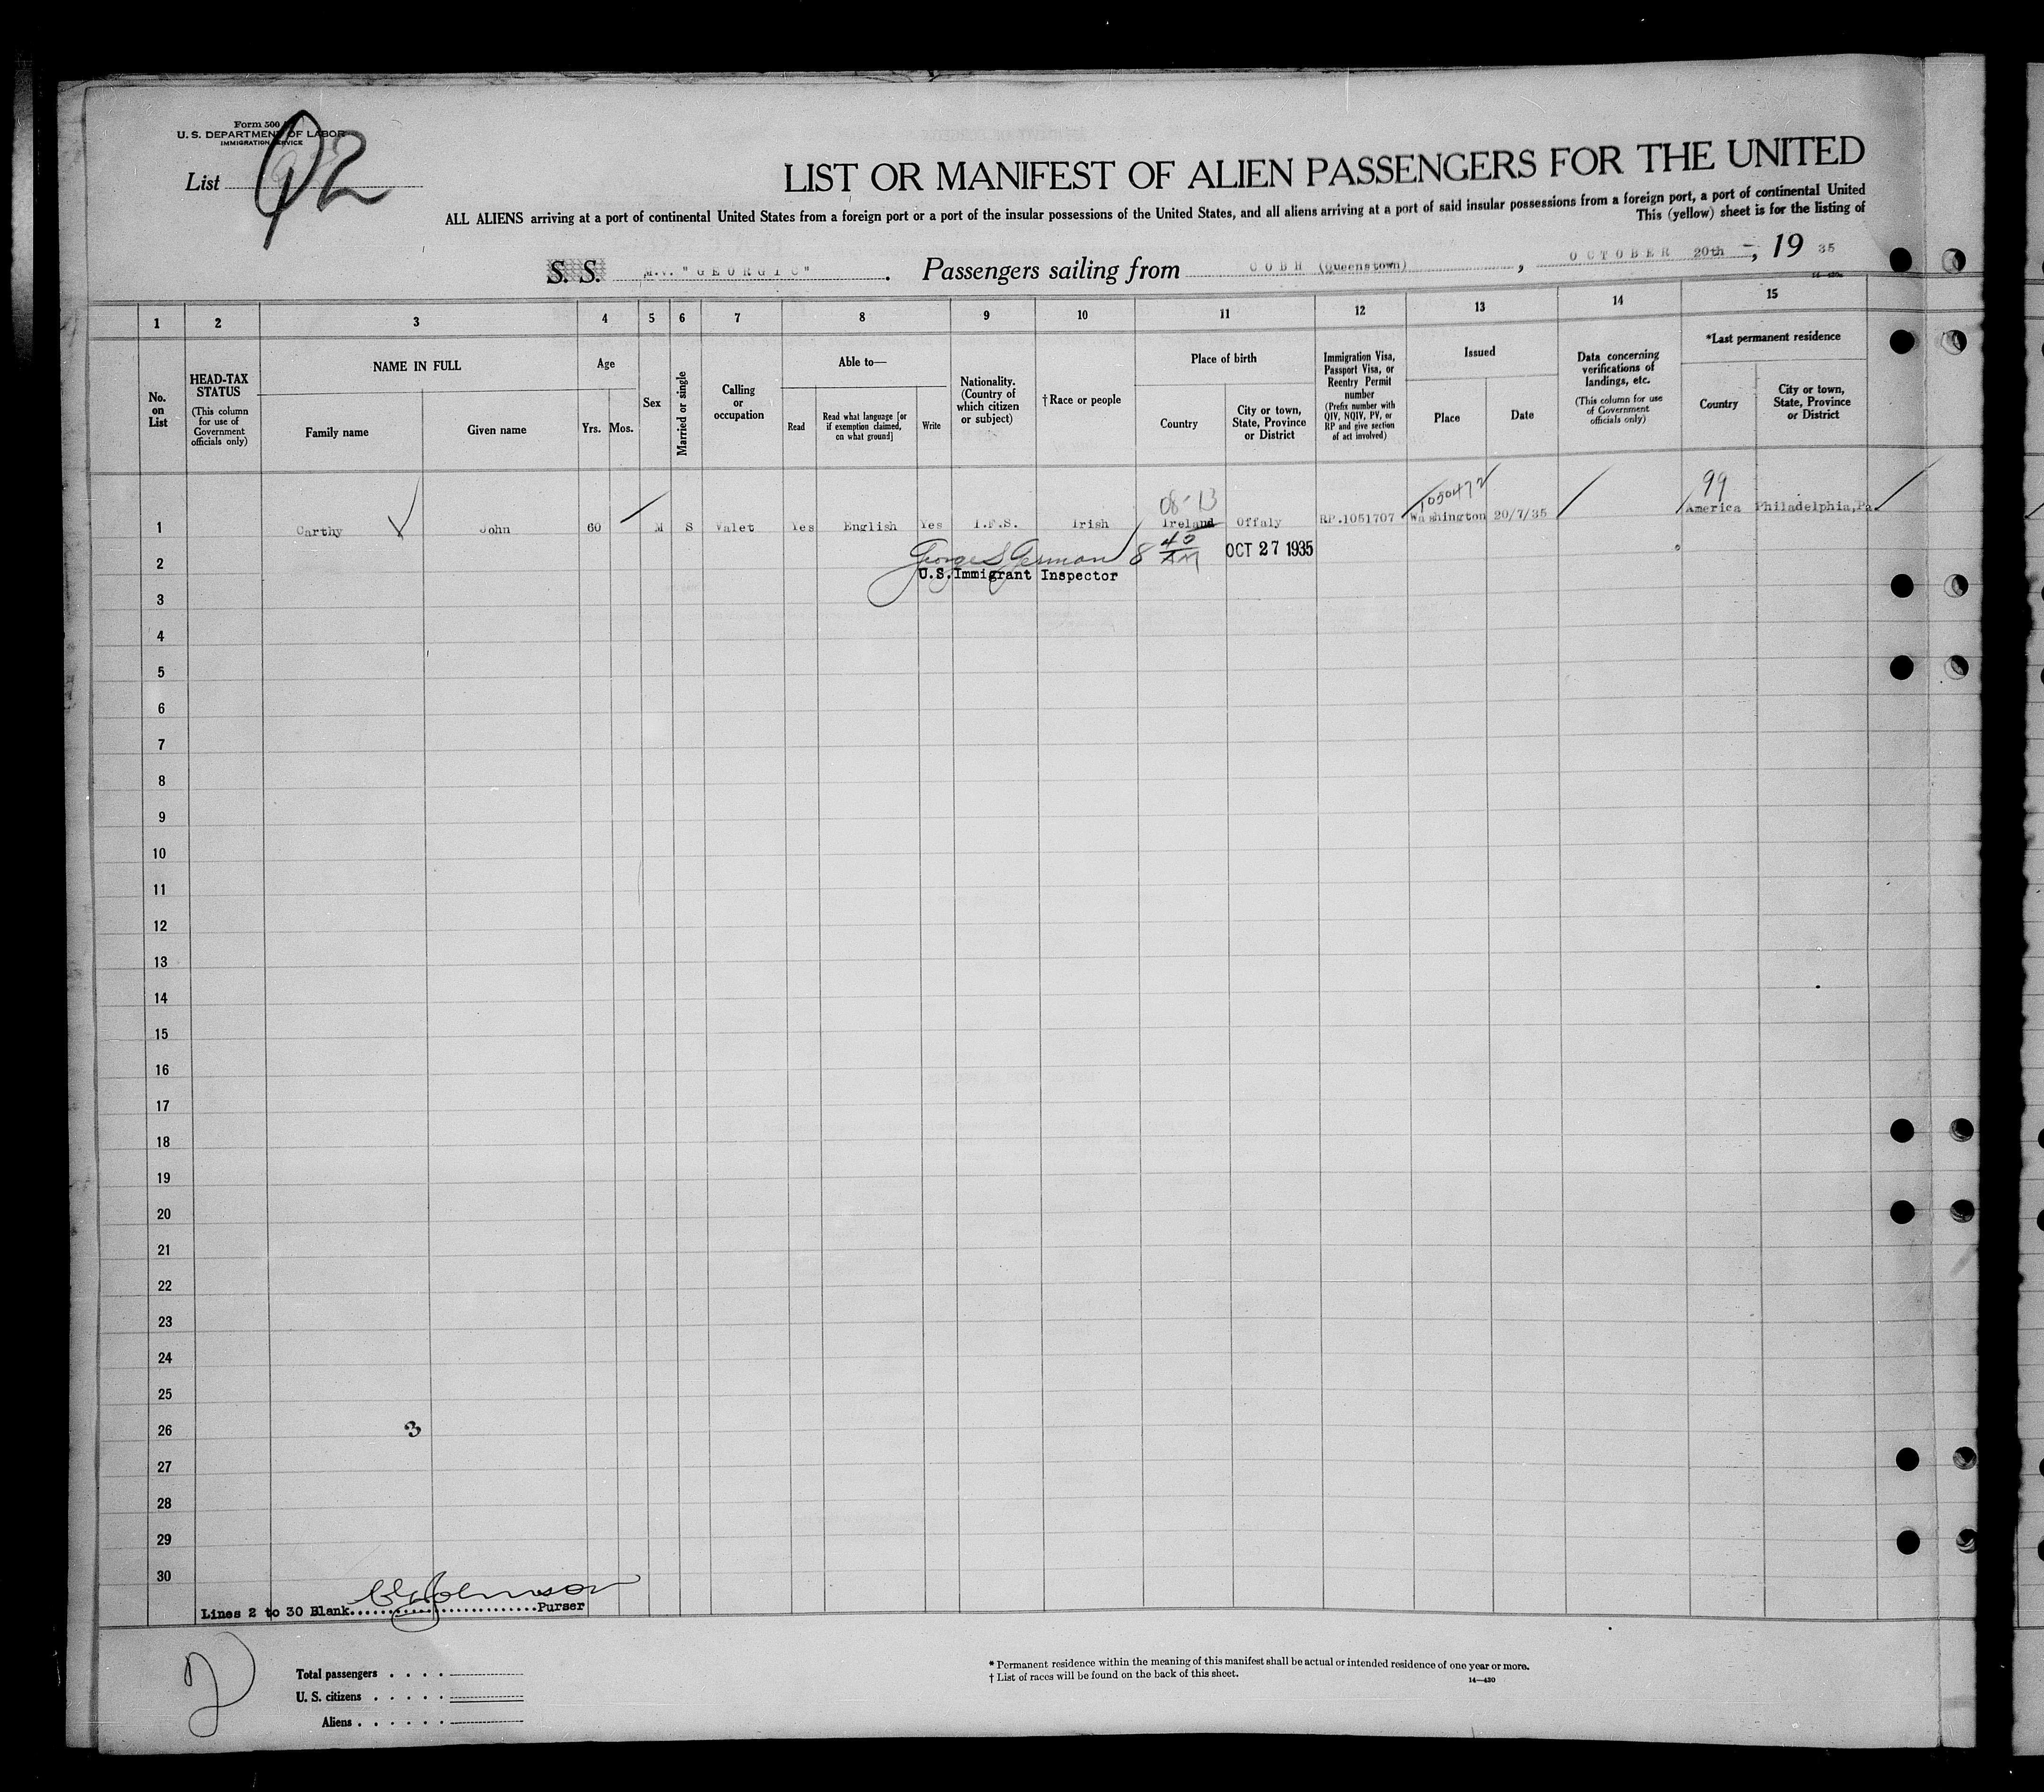 Form 500
U. S. DEPARTMENT OF LABOR
IMMIGRATION SERVICE
List 92
LIST OR MANIFEST OF ALIEN PASSENGERS FOR THE UNITED
ALL ALIENS arriving at a port of continental United States from a foreign port or a port of the insular possessions of the United States, and all aliens arriving at a port of said insular possessions from a foreign port, a port of continental United
This (yellow) sheet is for the listing of
S. S. M.V. "GEORGIC". Passengers sailing from COBH (Queenstown), OCTOBER 20th, 19 35
1 2 3 4 5 6 7 8 9 10 11 12 13 14 15
No. on List
HEAD-TAX STATUS
(This column for use of Government officials only)
NAME IN FULL
Family name
Given name
Age
Yrs.
Mos.
Sex
Married or single
Calling or occupation
Able to—
Read
Read what language [or if exemption claimed, on what ground]
Write
Nationality. (Country of which citizen or subject)
† Race or people
Place of birth
Country
City or town, State, Province or District
Immigration Visa, Passport Visa, or Reentry Permit number
(Prefix number with QIV, NQIV, PV, or RP and give section of act involved)
Issued
Place
Date
Data concerning verifications of landings, etc.
(This column for use of Government officials only)
*Last permanent residence
Country
City or town, State, Province or District
08-13
1050472
99
1 Carthy John 60 M S Valet Yes English Yes I.F.S. Irish Ireland Offaly RP.1051707 Washington 20/7/35 America Philadelphia,Pa.
2 George S German 8 40 AM OCT 27 1935
U.S. Immigrant Inspector
3
4
5
6
7
8
9
10
11
12
13
14
15
16
17
18
19
20
21
22
23
24
25
26 3
27
28
29
30
Lines 2 to 30 Blank..........................Purser
Total passengers
U. S. citizens
Aliens
* Permanent residence within the meaning of this manifest shall be actual or intended residence of one year or more.
† List of races will be found on the back of this sheet.
14—430